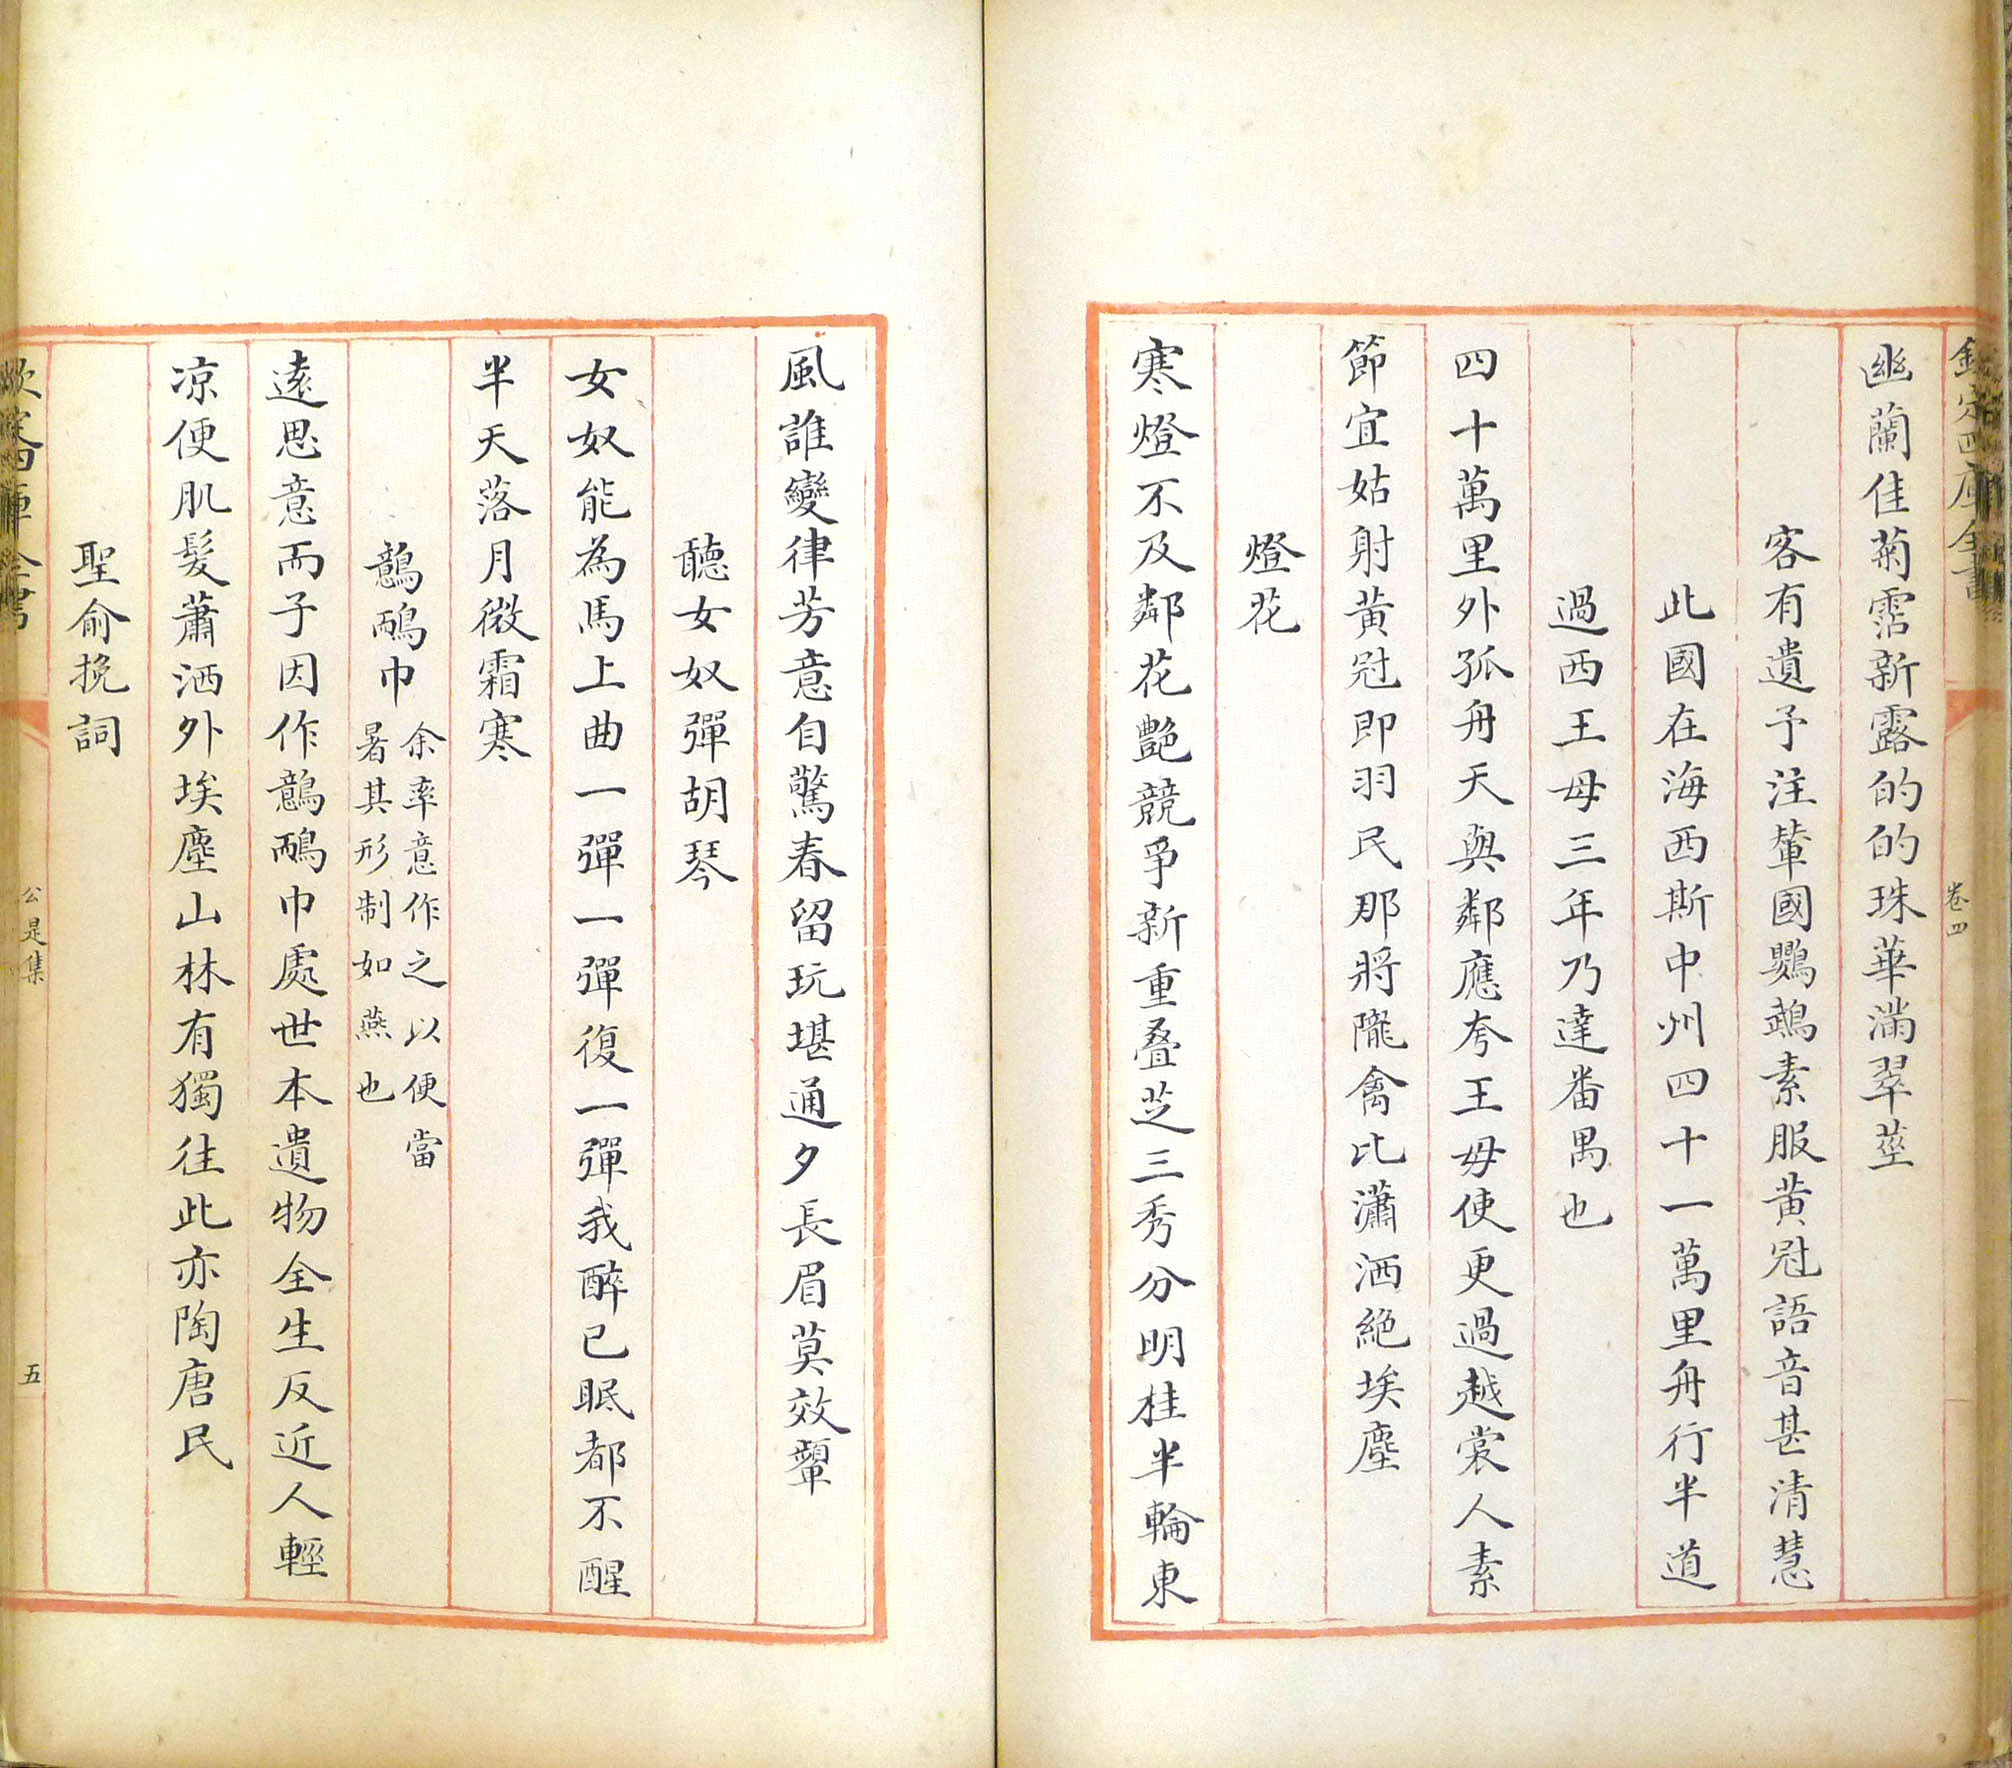 欽定四庫全書
卷四
幽蘭佳菊霑新露的的珠華滿翠莖
客有遺予注輦國鸚鵡素服黃冠語音甚清慧
此國在海西斯中州四十一萬里舟行半道
過西王母三年乃達番禺也
四十萬里外孤舟天與鄰應夸王母使更過越裳人素
節宜姑射黃冠即羽民那將隴禽比瀟洒絕埃塵
燈花
寒燈不及鄰花艷競爭新重叠芝三秀分明桂半輪東
風誰變律芳意自驚春留玩堪通夕長眉莫效顰
聽女奴彈胡琴
女奴能為馬上曲一彈一彈復一彈我醉已眠都不醒
半天落月微霜寒
鷾鴯巾余率意作之以便當
暑其形制如燕也
遠思意而子因作鷾鴯巾處世本遺物全生反近人輕
凉便肌髮蕭洒外埃塵山林有獨往此亦陶唐民
聖俞挽詞
欽定四庫全書
公是集
五